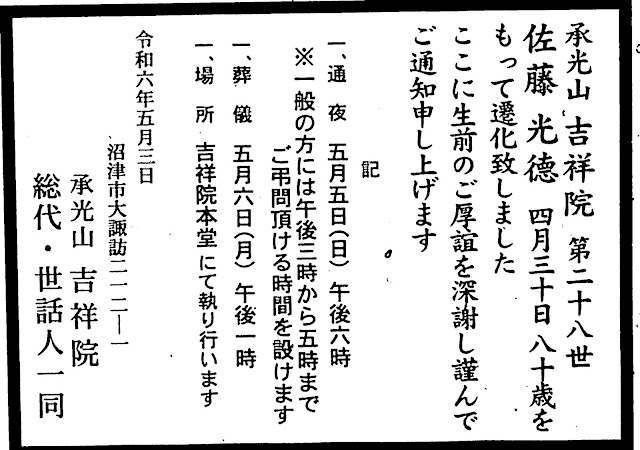 承光山 吉祥院 第二十八世
佐藤 光徳 四月三十日 八十歳を
もって遷化致しました
ここに生前のご厚誼を深謝し謹んで
ご通知申し上げます
記
一、通夜 五月五日(日) 午後六時
※一般の方には午後三時から五時まで
ご弔問頂ける時間を設けます
一、葬儀 五月六日(月) 午後一時
一、場所 吉祥院本堂 にて執り行います
令和六年五月三日
沼津市大諏訪二一二―一
承光山 吉祥院
総代・世話人一同